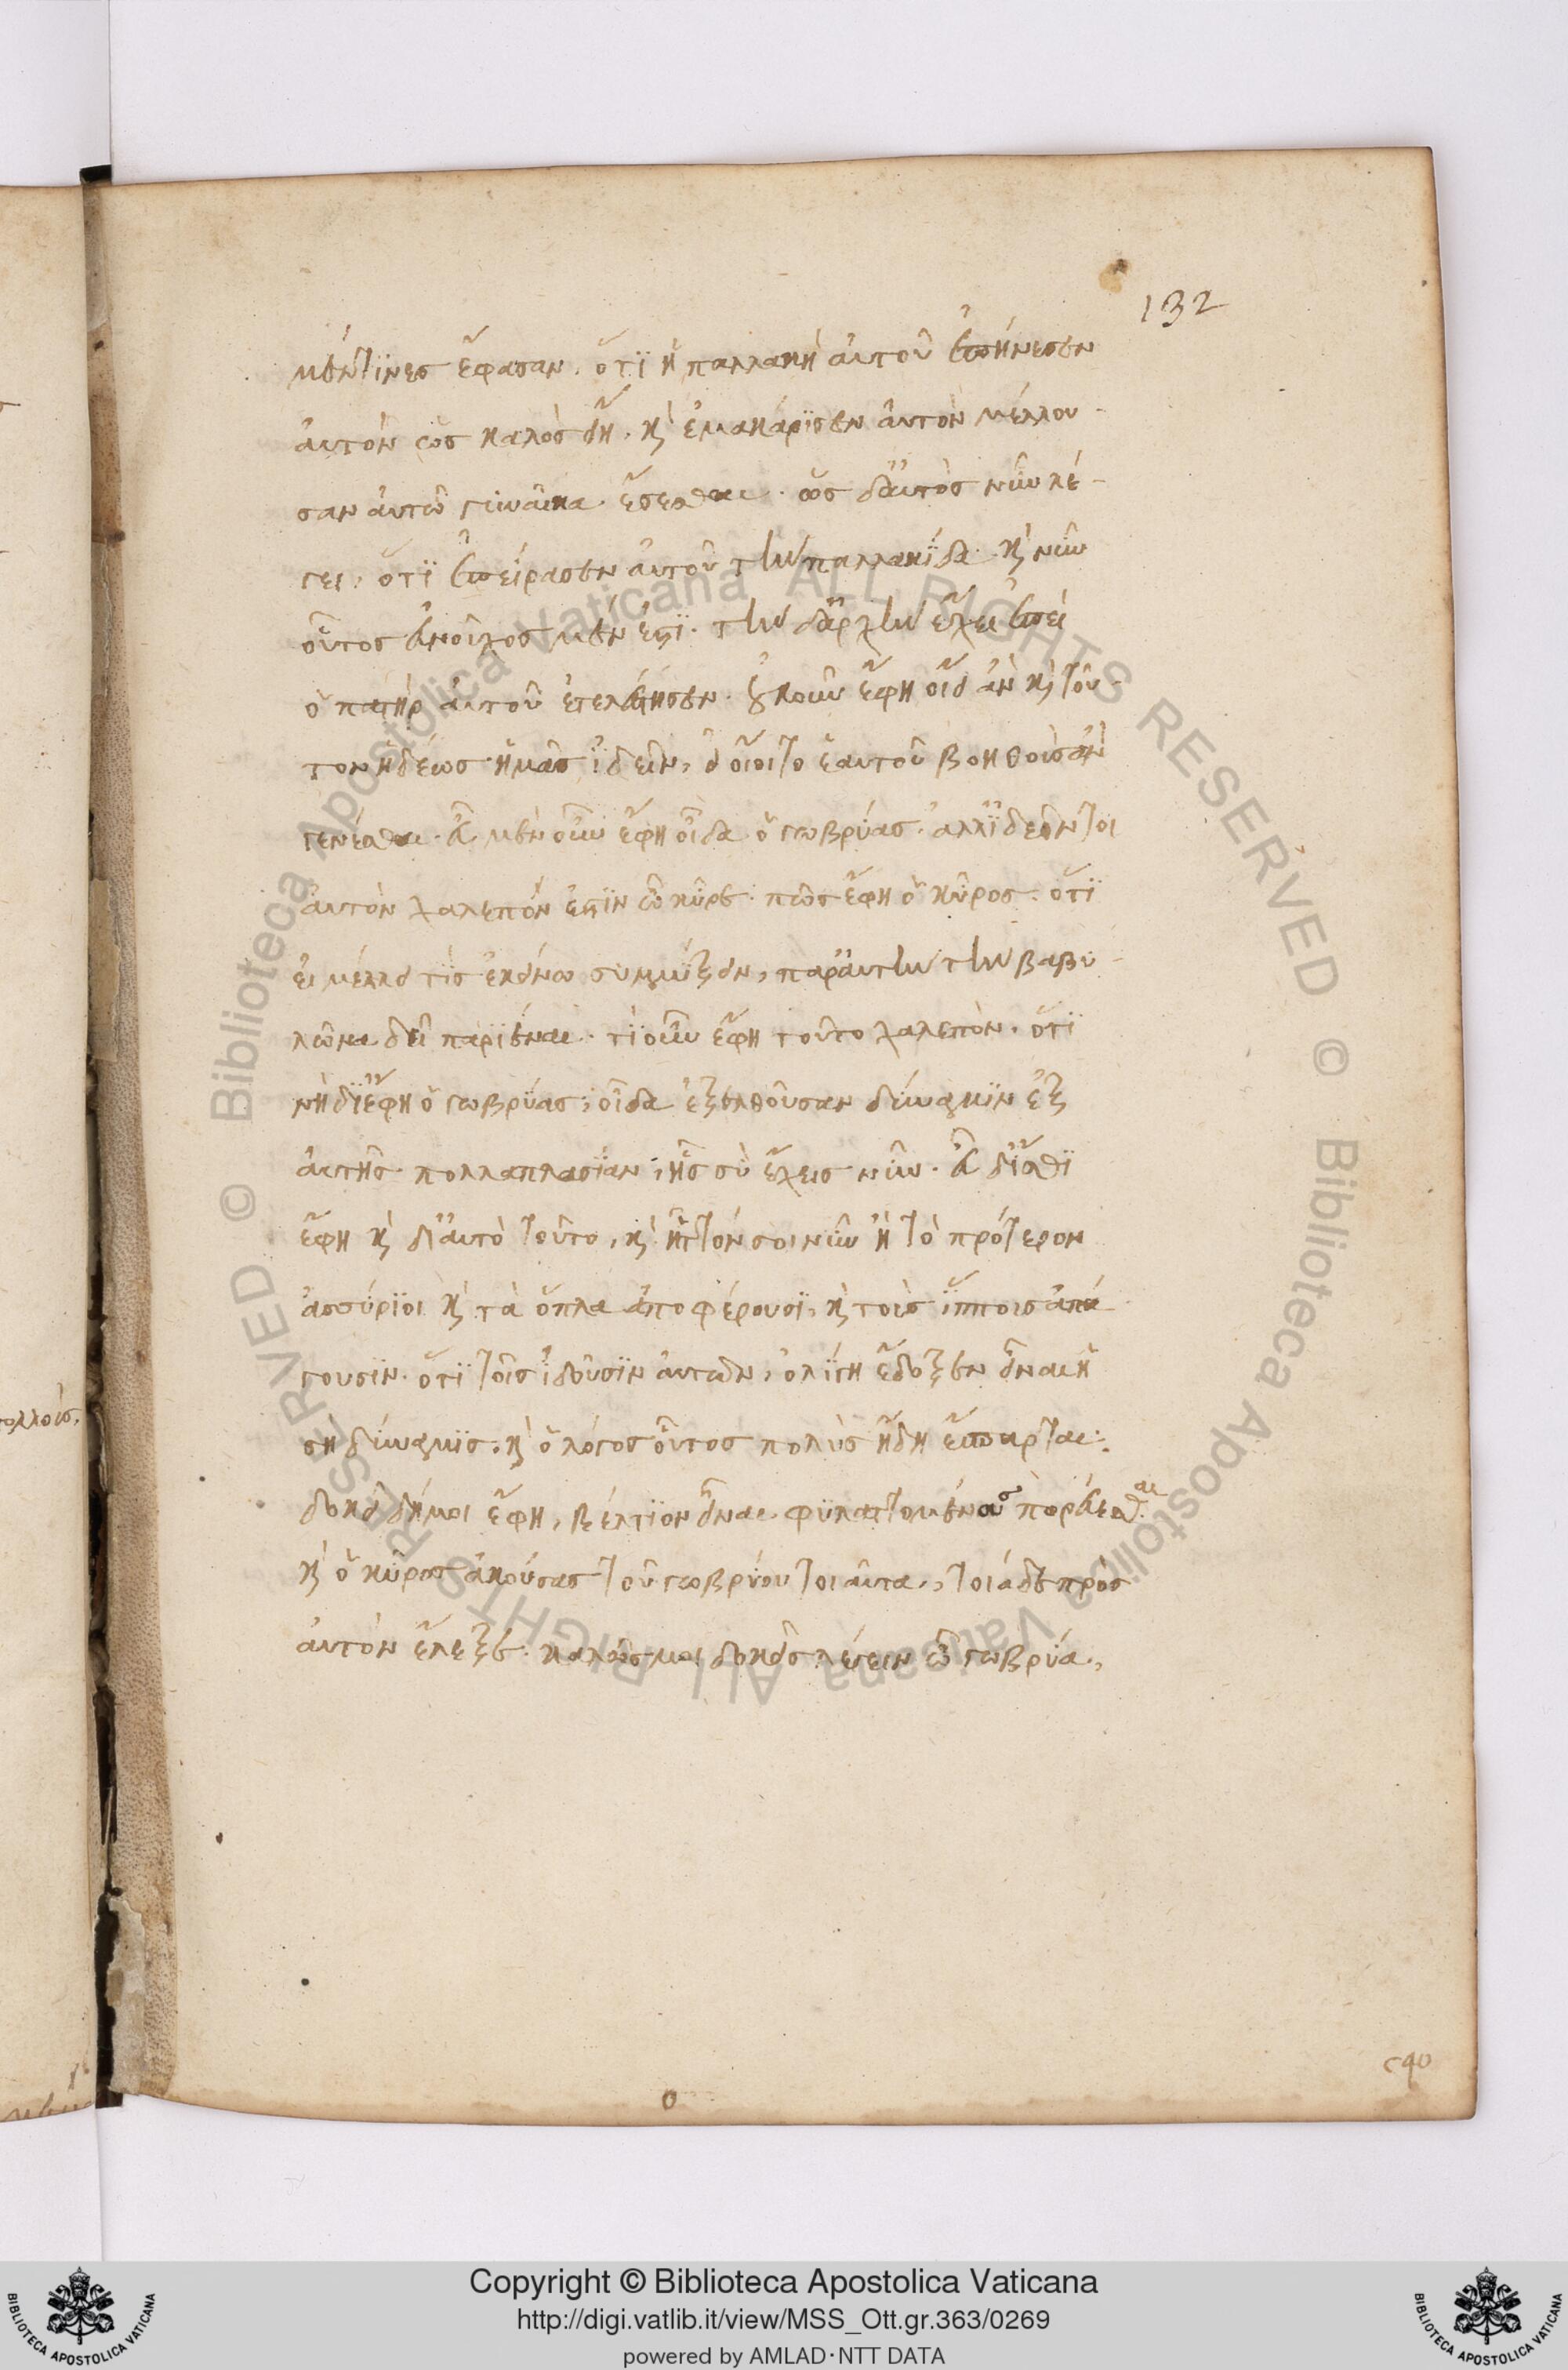 132
μέν τινες ἔφασαν. ὅτι ἡ παλλακὴ αὐτοῦ ἐπήνεσεν
αὐτὸν ὡς καλὸς εἴη. κỳ ἐμακάρισεν αὐτὸν μέλλου-
σαν αὐτῶ γυναῖκα ἔσεσθαι. ὡς δ' αὐτὸς νῦν λέ-
γει, ὅτι ἐπείρασεν αὐτοῦ τὴν παλλακίδα. κỳ νῦν
οὗτος εὐνοῦχος μέν ἐστι. τὴν δ' ἀρχὴν ἔχει ἐπεὶ
ὁ πατὴρ αὐτοῦ ἐτελεύτησεν. οὐκοῦν ἔφη οἴει ἂν κỳ τοῦ-
τον ἡδέως ἡμᾶς ἰδεῖν, εἰ οἴοιτο ἑαυτοῦ βοηθοὺς ἂν
γενέσθαι. εὖ μὲν οὖν ἔφη οἶδα ὁ γωβρύας. ἀλλ' ἰδεῖν τοι
αὐτὸν χαλεπόν ἐστιν ὦ κῦρε. πῶς ἔφη ὁ κῦρος. ὅτι
εἰ μέλλει τὶς ἐκείνω συμμίξειν, παρ' αὐτὴν τὴν βαβυ-
λῶνα δεῖ παριέναι. τί οὖν ἔφη τοῦτο χαλεπόν. ὅτι
νὴ δί' ἔφη ὁ γωβρύας, οἶδα ἐξελθοῦσαν δύναμιν ἐξ
αὐτῆς πολλαπλασίαν, ἧς σὺ ἔχεις νῦν. εὖ δ' ἴσθι
ἔφη κỳ δι' αὐτὸ τοῦτο, κỳ ἧττόν σοι νῦν ἢ τὸ πρότερον
ἀσσύριοι κỳ τὰ ὅπλα ἀποφέρουσι, κỳ τοὺς ἵππους ἀπά
γουσιν. ὅτι τοῖς ἰδοῦσιν αὐτῶν, ὀλίγη ἔδοξεν εἶναι ἡ
σὴ δύναμις. κỳ ὁ λόγος οὗτος πολὺς ἤδη ἔσπαρται.
δοκεῖ δή μοι ἔφη, βέλτιον εἶναι φυλαττομένους πορεύεσθαι
κỳ ὁ κῦρος ἀκούσας τοῦ γωβρύου τοιαῦτα, τοιάδε πρὸς
αὐτὸν ἔλεξε. καλῶς μοι δοκεῖς λέγειν ὦ γωβρύα,
Copyright © Biblioteca Apostolica Vaticana
http://digi.vatlib.it/view/MSS_Ott.gr.363/0269
powered by AMLAD·NTT DATA